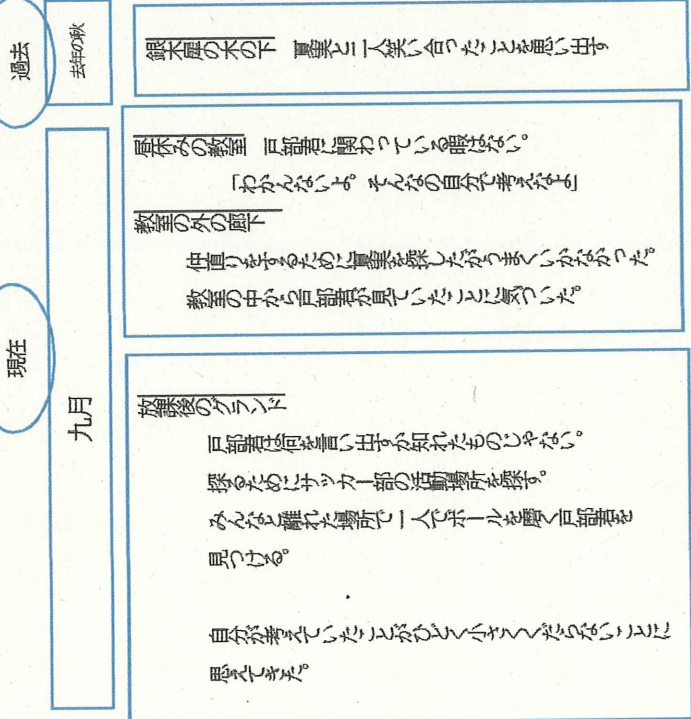 過去
去年の秋
銀木犀の木の下　夏実と二人笑い合ったことを思い出す
現在
九月
昼休みの教室　戸部君に関わっている暇はない。
「わかんないよ。そんなの自分で考えなよ」
教室の外の廊下
仲直りをするために夏実を探したがうまくいかなかった。
教室の中から戸部君が見ていたことに気づいた。
放課後のグランド
戸部君は何を言い出すか知れたものじゃない。
探るためにサッカー部の活動場所を探す。
みんなと離れた場所で一人でボールを磨く戸部君を
見つける。
自分が考えていたことがひどく小さくくだらないことに
思えてきた。